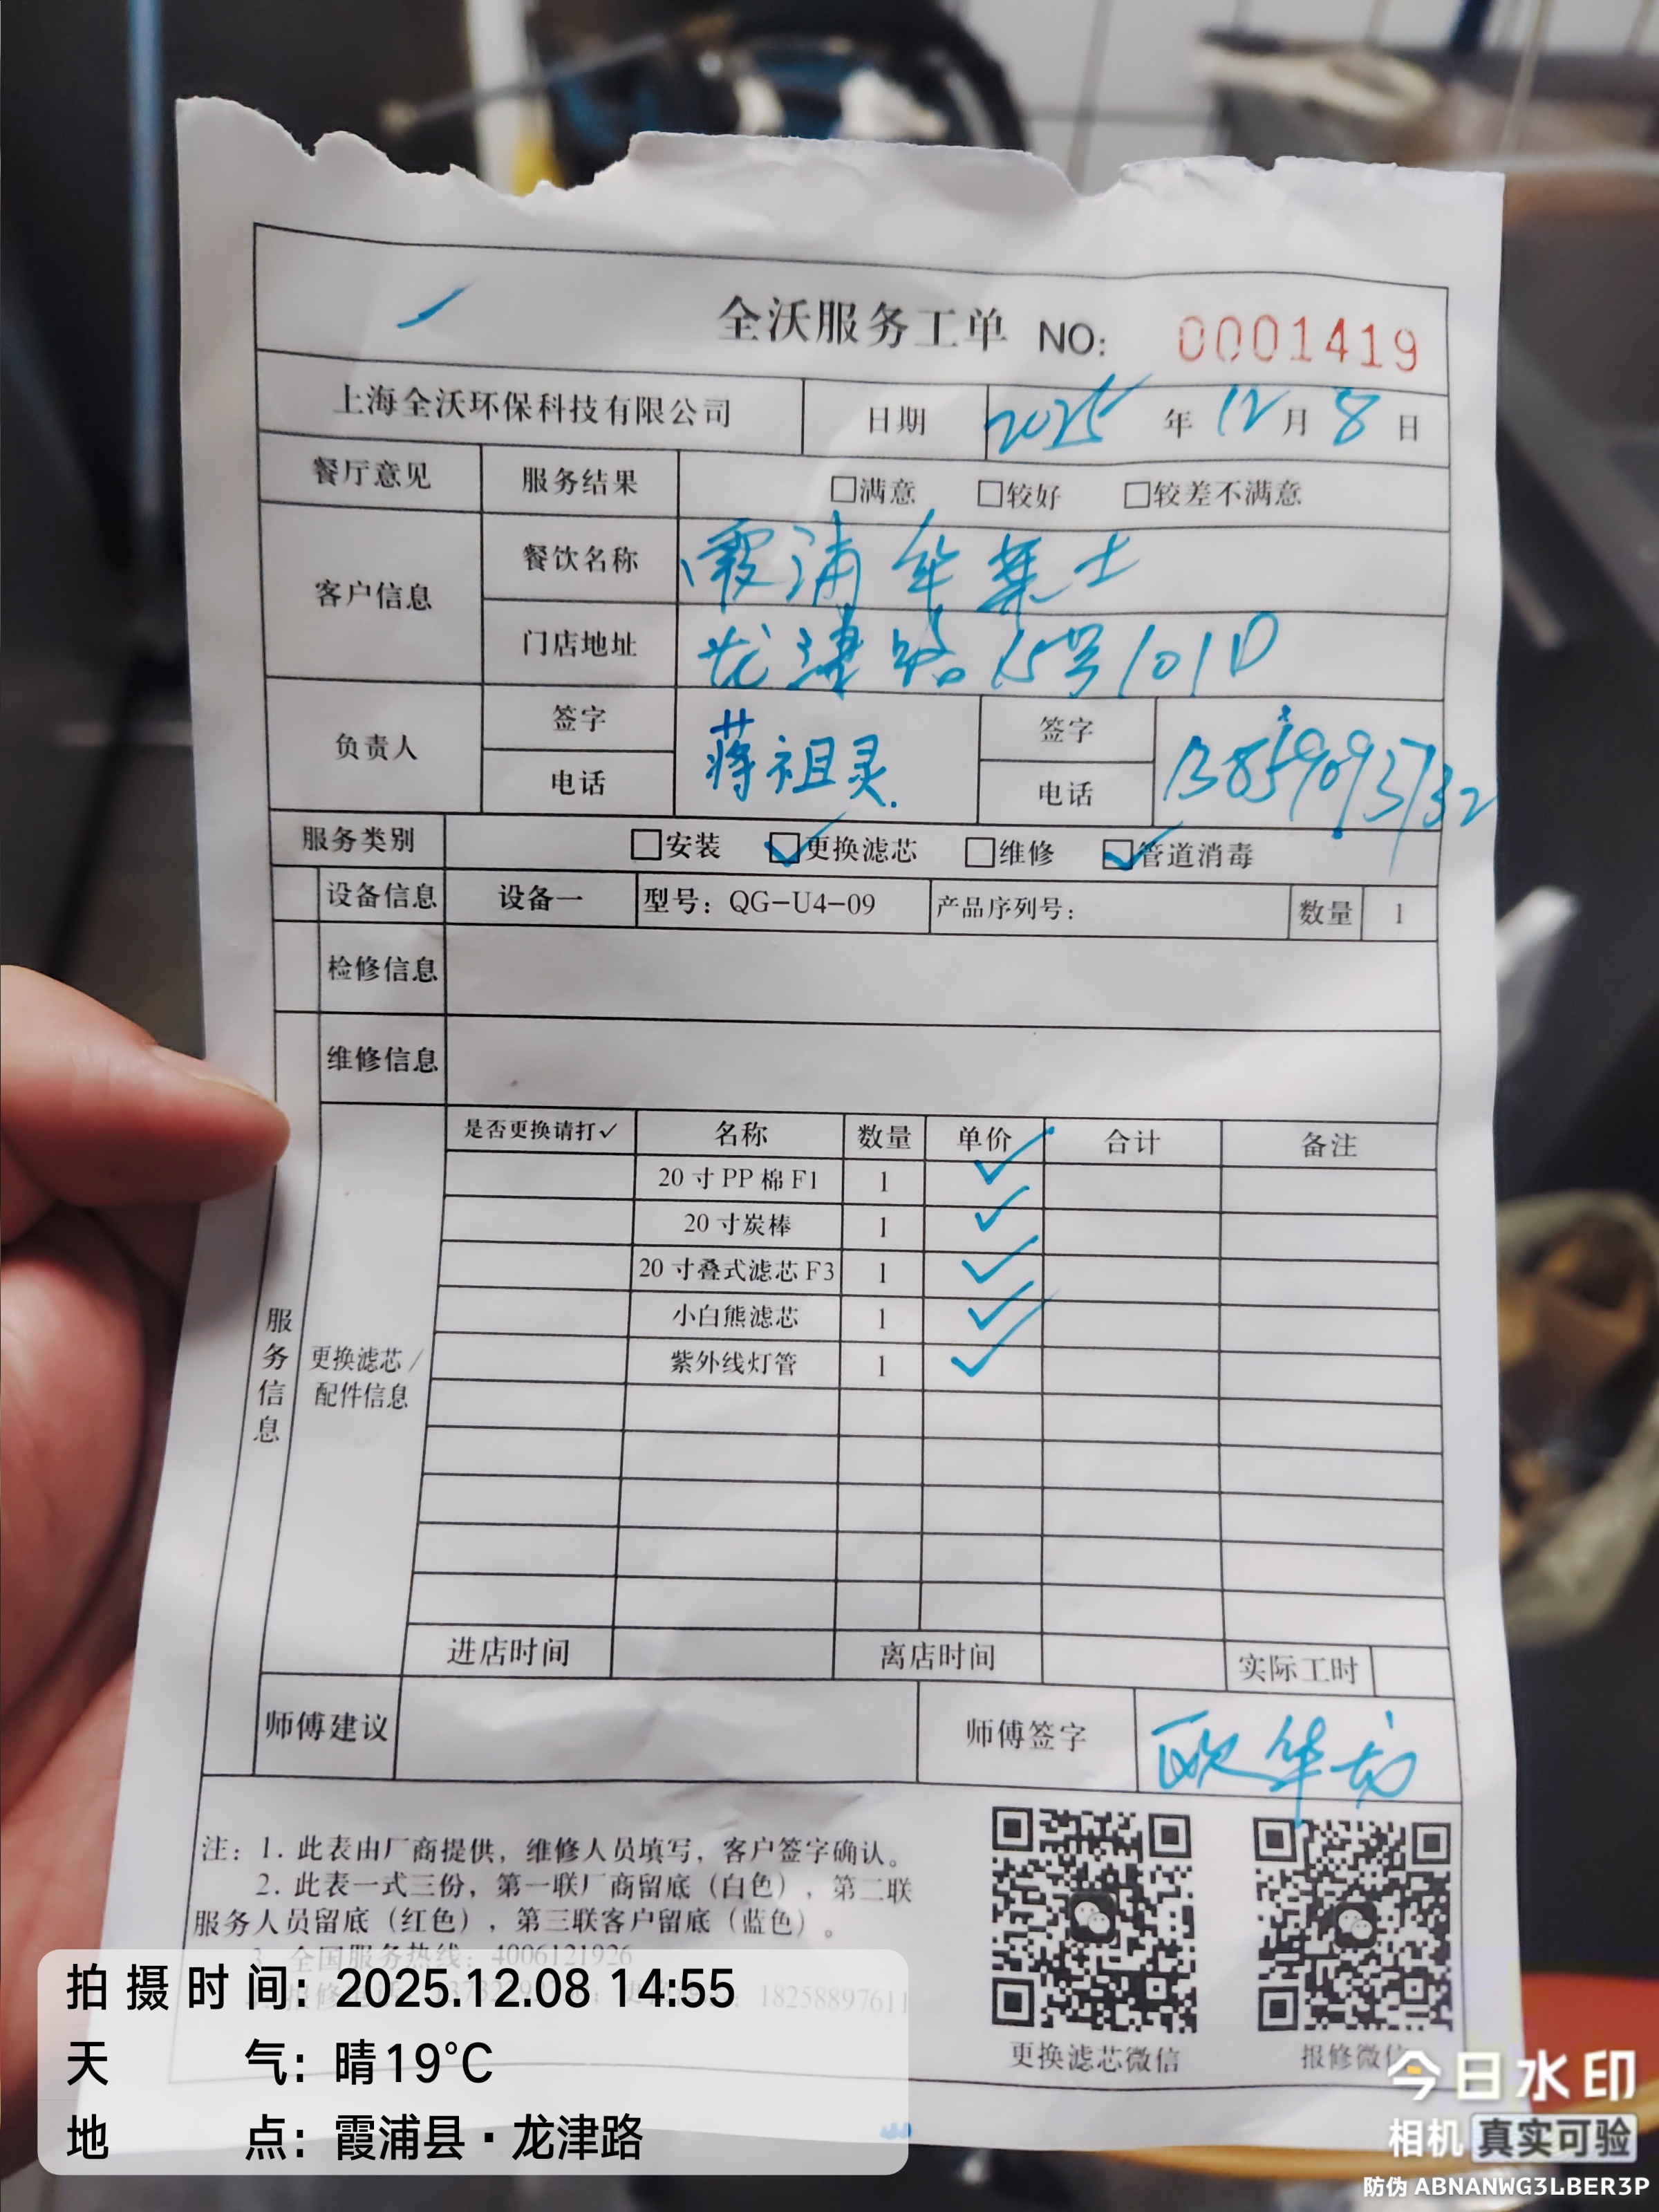 全沃服务工单 NO: 0001419
上海全沃环保科技有限公司 日期 2025 年 12 月 8 日
餐厅意见 服务结果 □满意 □较好 □较差不满意
客户信息 餐饮名称 霞浦华莱士
门店地址 龙津路15号101D
负责人 签字 蒋祖灵. 签字
电话 电话 13859093732
服务类别 □安装 ☑更换滤芯 □维修 ☑管道消毒
设备信息 设备一 型号：QG-U4-09 产品序列号： 数量 1
检修信息
维修信息
服务信息
更换滤芯/配件信息
是否更换请打✓ 名称 数量 单价 合计 备注
20寸PP棉F1 1 ✓
20寸炭棒 1 ✓
20寸叠式滤芯F3 1 ✓
小白熊滤芯 1 ✓
紫外线灯管 1 ✓
进店时间 离店时间 实际工时
师傅建议 师傅签字 欧华龙
注：1. 此表由厂商提供，维修人员填写，客户签字确认。
2. 此表一式三份，第一联厂商留底（白色），第二联
服务人员留底（红色），第三联客户留底（蓝色）。
3. 全国服务热线：4006121926
报修 18258897611
更换滤芯微信 报修微信
拍摄时间：2025.12.08 14:55
天气：晴19℃
地点：霞浦县·龙津路
今日水印
相机 真实可验
防伪 ABNANWG3LBER3P